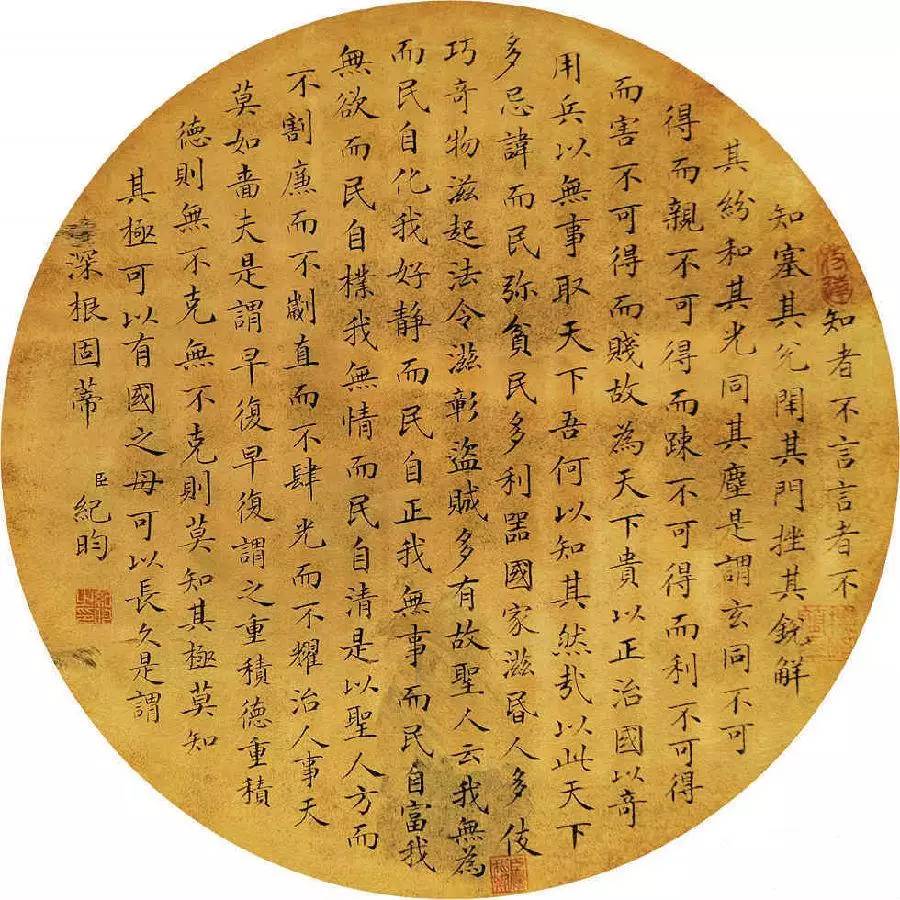 知者不言言者不
知塞其兌閉其門挫其銳解
其紛和其光同其塵是謂玄同不可
得而親不可得而踈不可得而利不可得
而害不可得而賤故為天下貴以正治國以奇
用兵以無事取天下吾何以知其然㢤以此天下
多忌諱而民弥貧民多利器國家滋昬人多伎
巧奇物滋起法令滋彰盜賊多有故聖人云我無為
而民自化我好静而民自正我無事而民自富我
無欲而民自樸我無情而民自清是以聖人方而
不割廉而不劌直而不肆光而不耀治人事天
莫如嗇夫是謂早復早復謂之重積德重積
德則無不克無不克則莫知其極莫知
其極可以有國之母可以長久是謂
深根固蒂
臣紀昀